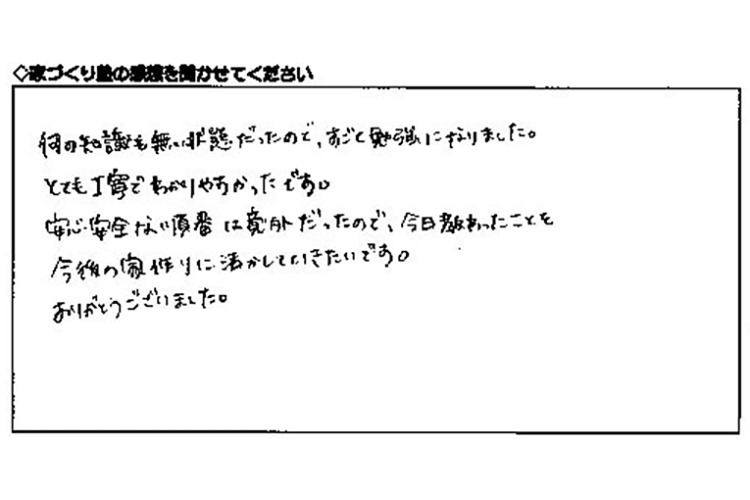 ◇家づくり塾の感想を聞かせてください
何の知識も無い状態だったので、すごく勉強になりました。
とても丁寧でわかりやすかったです。
安心・安全ない順番は意外だったので、今日教わったことを
今後の家作りに活かしていきたいです。
ありがとうございました。